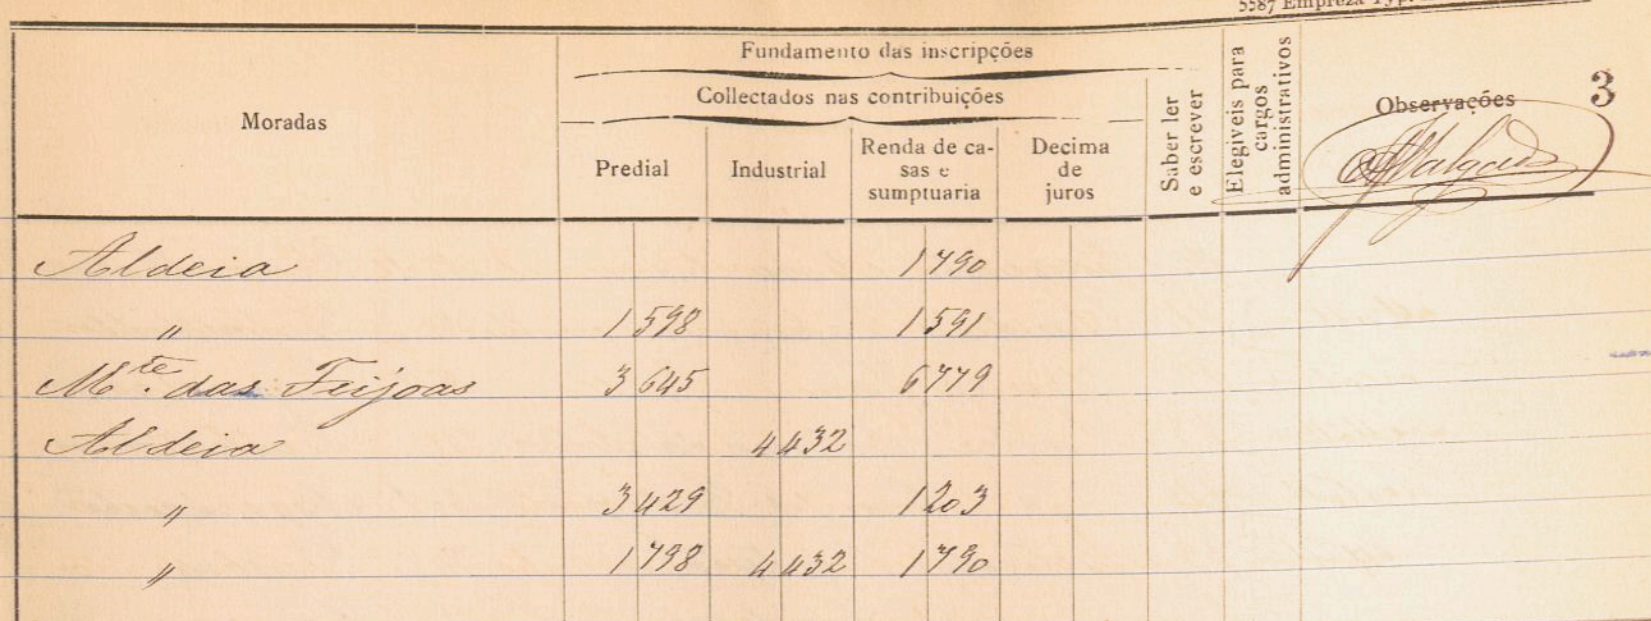 5587 Empreza Typ.
Fundamento das inscripções
Collectados nas contribuições
Moradas
Predial
Industrial
Renda de ca-
sas e
sumptuaria
Decima
de
juros
Saber ler
e escrever
Elegiveis para
cargos
administrativos
Observações
3
Aldeia 1790
" 1598 1591
Mte. das Feijoas 3645 6779
Aldeia 4432
" 3429 1203
" 1798 4432 1790